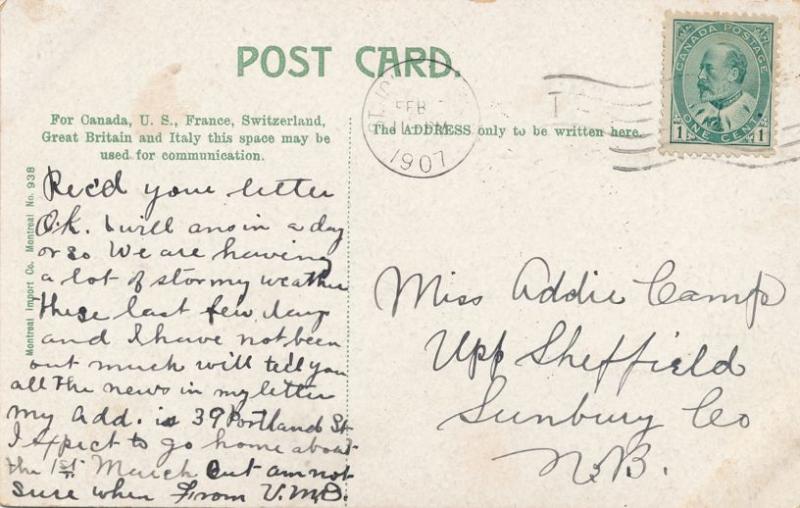 POST CARD.
For Canada, U. S., France, Switzerland,
Great Britain and Italy this space may be
used for communication.
The ADDRESS only to be written here.
ST. JO
FEB
PM
1907
CANADA POSTAGE
1 ONE CENT 1
Montreal Import Co. Montreal No. 938
Rec'd your letter
O.k. I will answ in a day
or so We are having
a lot of stormy weather
these last few days
and I have not been
out much will tell you
all the news in my letter
my add. is 39 Portland St
I expect to go home about
the 1st March but am not
sure when From V.M.B.
Miss Addie Camp
Upp Sheffield
Sunbury Co
N.B.